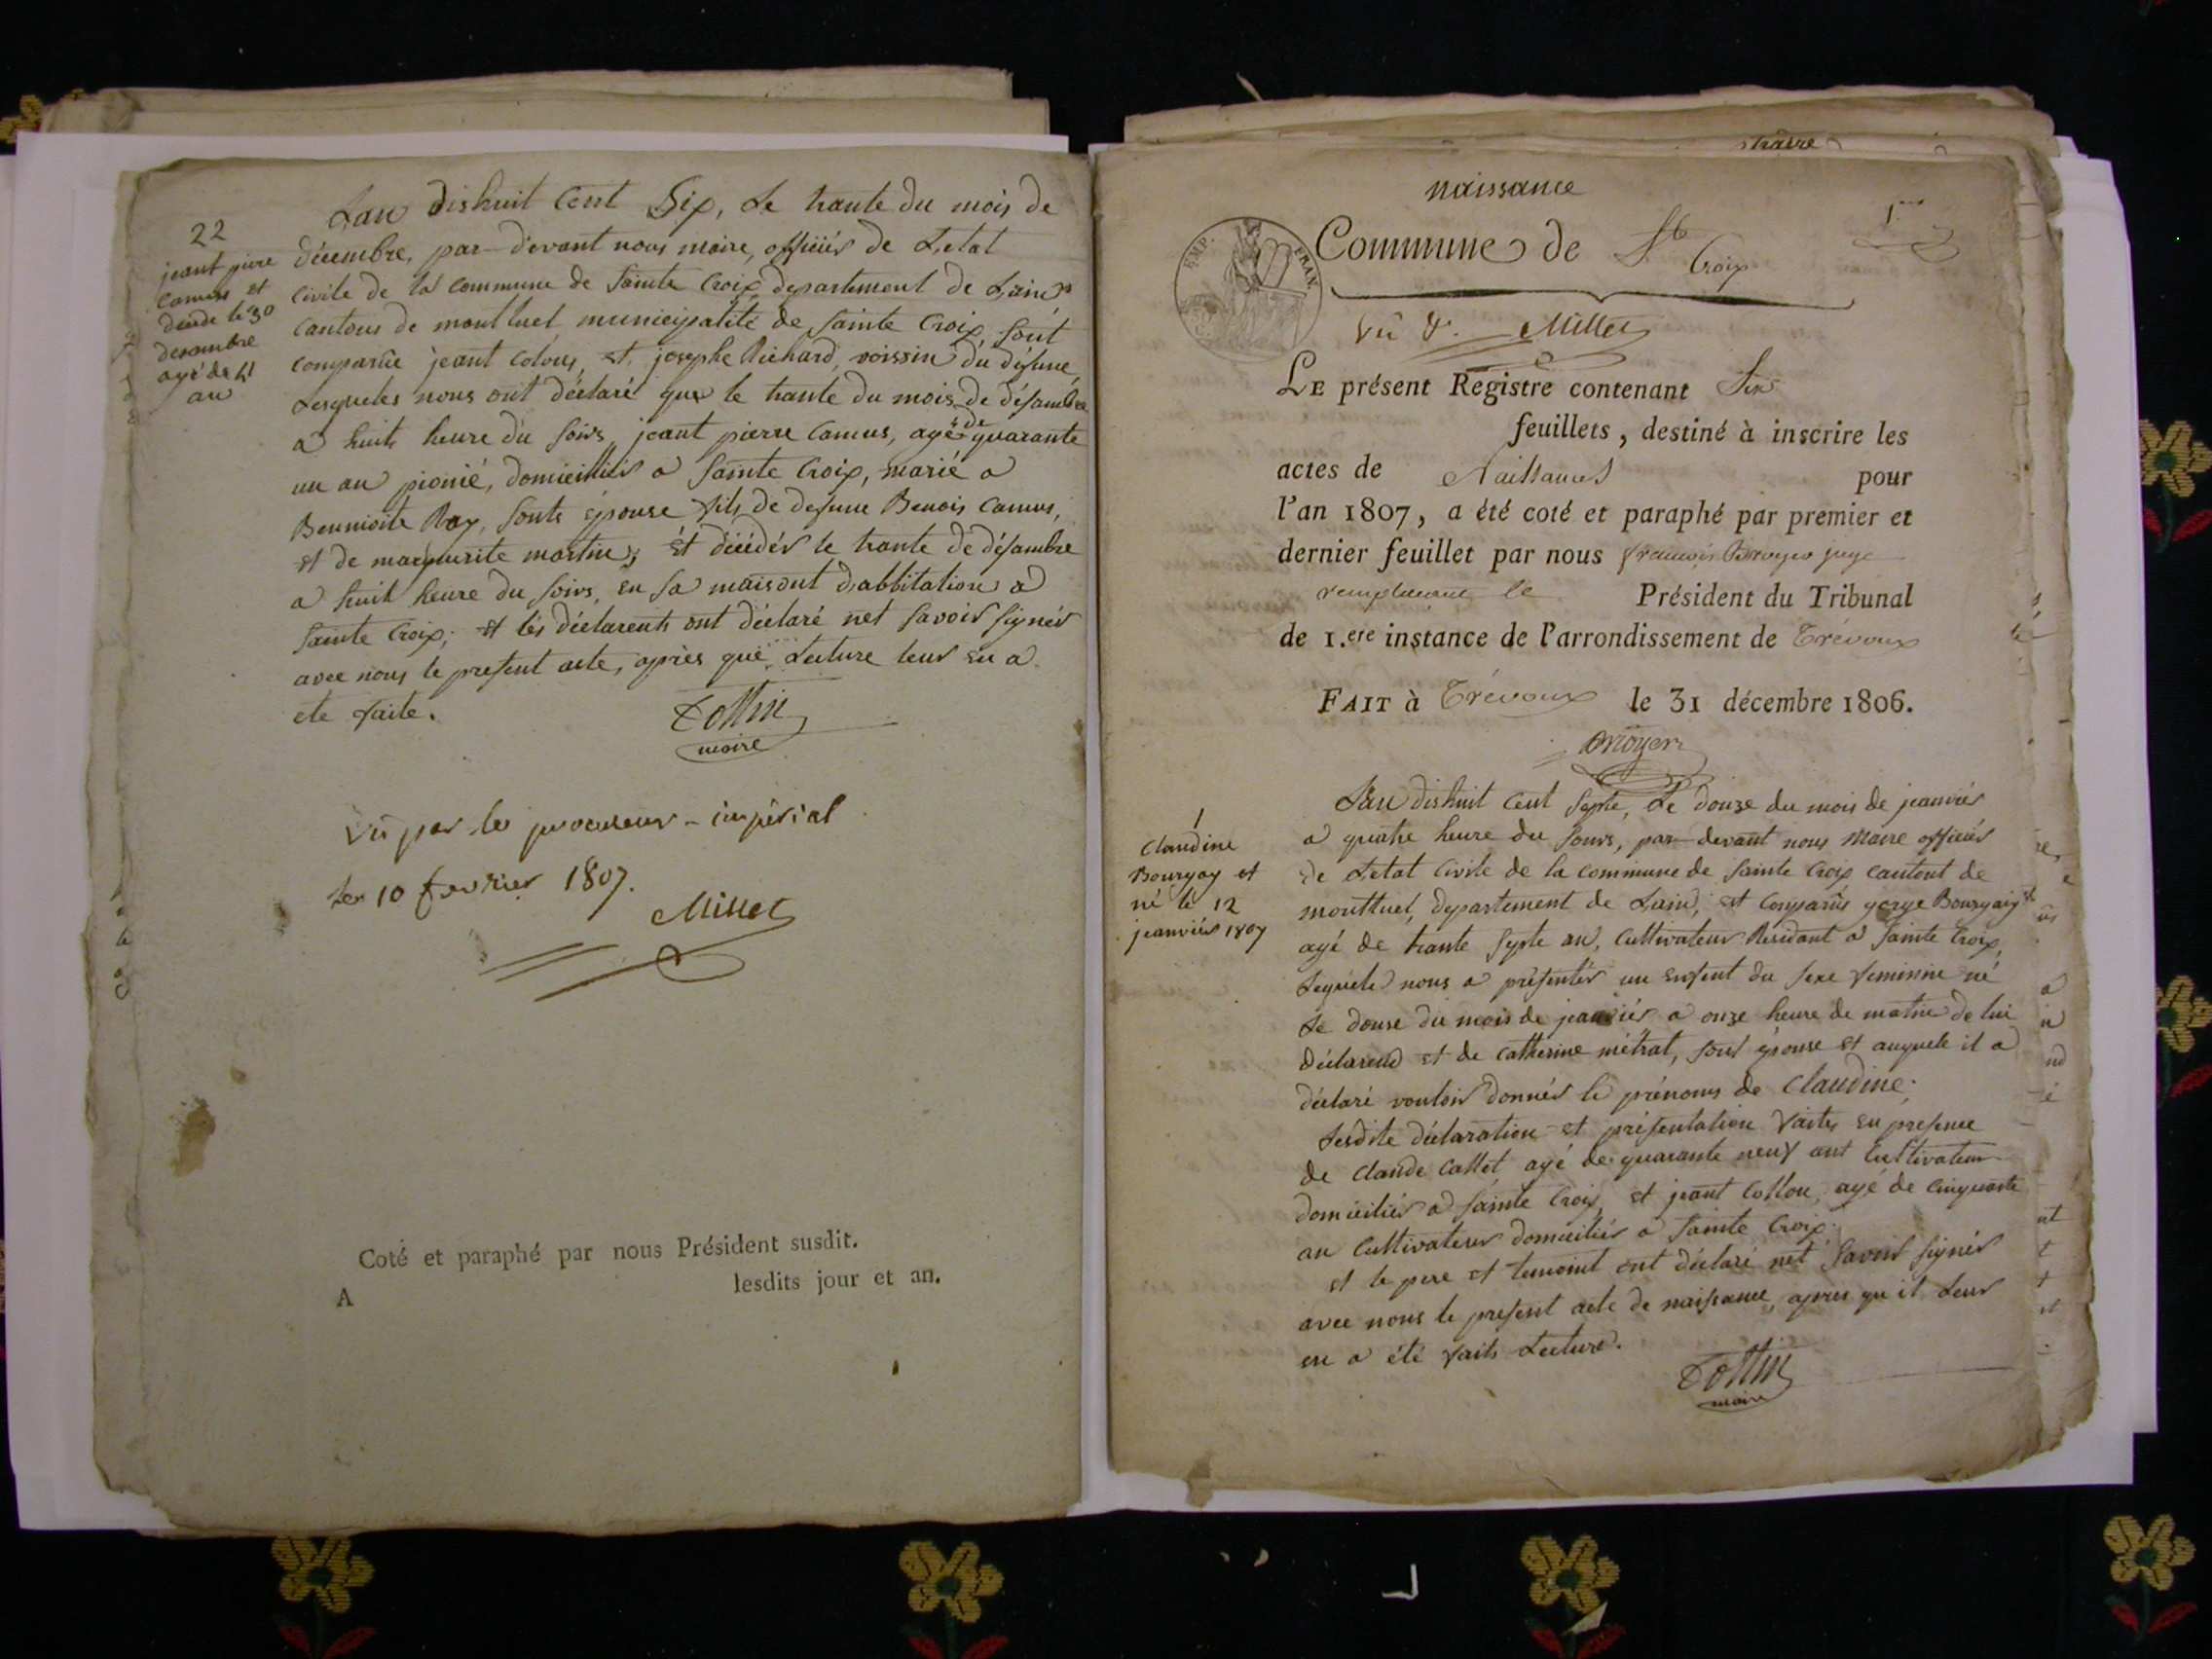 22
jeant piere
Camus et
décéde le 30
desambre
agé de 41
an
Lan dishuit Cent Six, Le trante du mois de
décembre, par-devant nous maire, officiér de Letat
Civile de la commune de Sainte Croix departement de Lain
Cantons de montluel municipalité de Sainte Croix, Sont
comparûe jeant Colous, et josephe Richard, voissin du défunt
Lesqueles nous ont déclaré que le trante du mois de désambre
a huits heure du Soirs, jeant pierre Camus, agé de quarante
un an pionié, domicilliér a Sainte Croix, marié a
Bennioite Ray, Sonts épouse fils de defunt Benois Camus,
et de marguerite martin; et décédér le trante de désambre
a huit heure du Soirs, en Sa maisont d'abbitation a
Sainte Croix; et lés déclarents ont déclaré net Savoir Signér
avec nous le present acte, après que Lecture leur en a
ete faite.
maire
Vû par le procureur-impérial
le 10 fevrier 1807.
Millet
Coté et paraphé par nous Président susdit.
A lesdits jour et an.
naissance
1
EMP. FRAN.
Commune de Ste Croix
Vû Millet
LE présent Registre contenant Six
feuillets, destiné à inscrire les
actes de Naissances pour
l'an 1807, a été coté et paraphé par premier et
dernier feuillet par nous francois juge
remplacant le Président du Tribunal
de 1.ere instance de l'arrondissement de Trévoux
FAIT à Trévoux le 31 décembre 1806.
1
Claudine
Bourgay et
né le 12
jeanviér 1807
Lan dishuit Cent Septe, Le douze du mois de jeanviér
a quatre heure du Soirs, par-devant nous Maire officiér
de Letat Civile de la commune de Sainte Croix cantont de
montluel, departement de Lain, et Comparûs gorge Bourgay
agé de trante Septe an, Cultivateur Résidant a Sainte Croix,
Lequele nous a présentér un enfent du Sexe feminin né
Le douse du mois de jeanviér a onze heure de matin de lui
déclarend et de Catherine métrat, Sont épouse et auquele il a
déclaré vouloir donnér le prénoms de Claudine;
Lesdite déclaration et présentation faites en presence
de Claude Callet agé de quarante neuf ant Cultivateur
domiciliér a Sainte Croix, et jeant Collou, agé de Cinquante
an Cultivateur domiciliér a Sainte Croix.
et le pere et temoint ont déclaré net Savoir Signér
avec nous le present acte de naissance, apres qu'il Leur
en a été faits Lecture.
maire